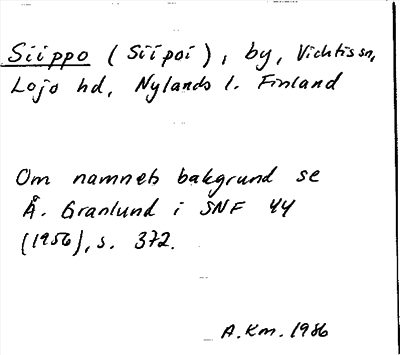 Siippo (Siipoi), by, Vichtis sn,
Lojo hd, Nylands l. Finland
Om namnets bakgrund se
Å. Granlund i SNF 44
(1956), s. 372.
A.Km. 1986